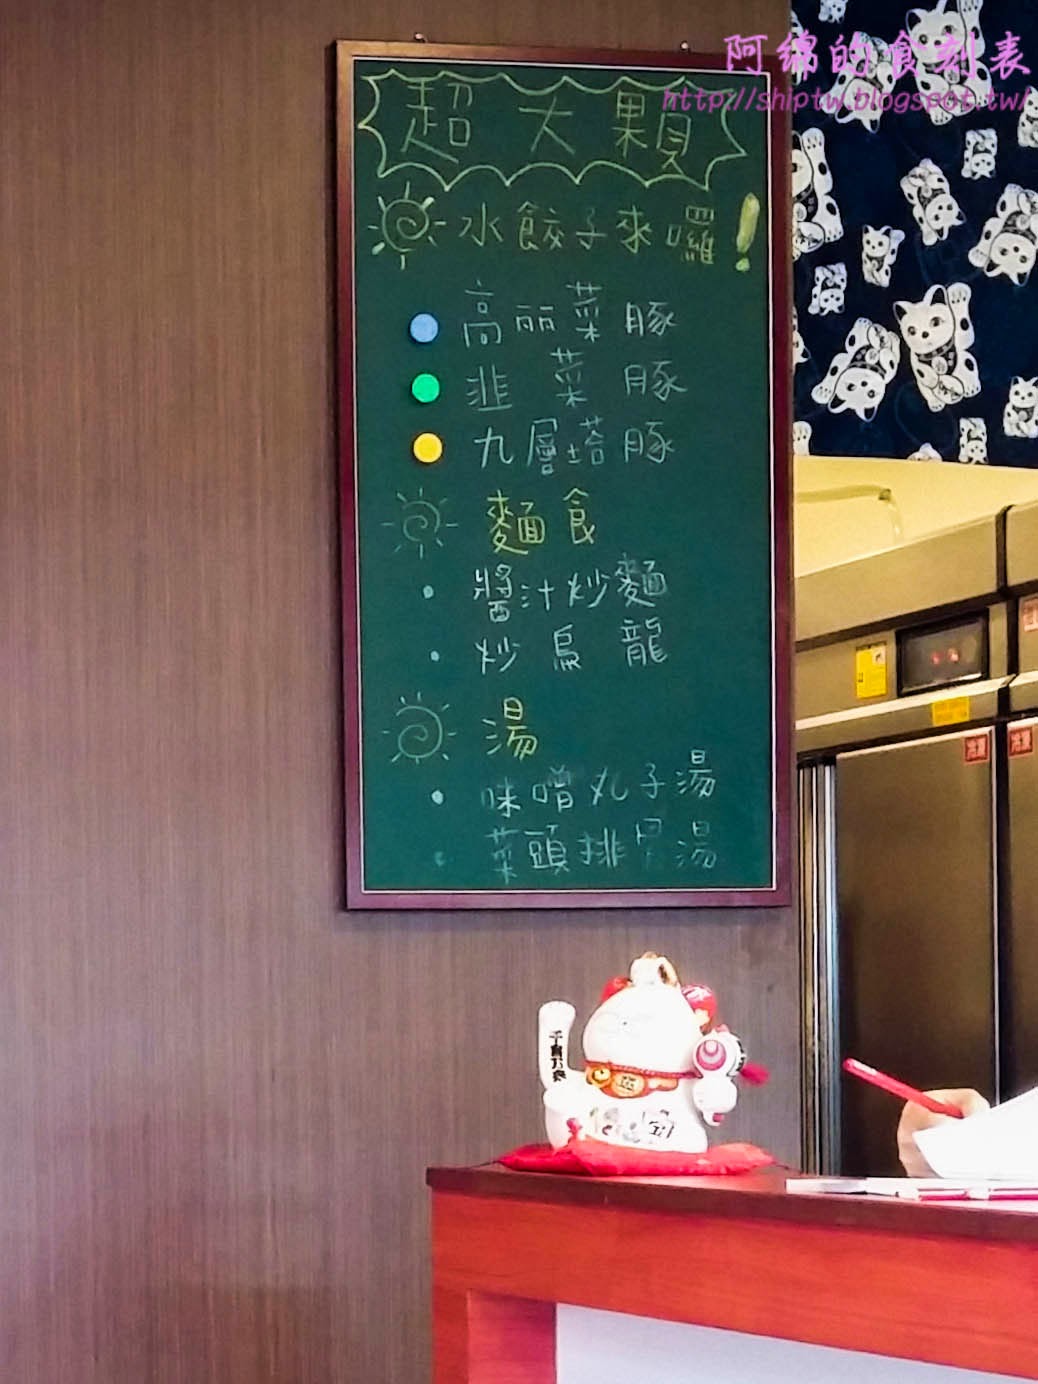 阿綿的食刻表
http://shiptw.blogspot.tw/
超大顆
水餃子來囉!
高丽菜豚
韭菜豚
九層塔豚
麵食
醬汁炒麵
炒烏龍
湯
味噌丸子湯
菜頭排骨湯
冷凍
冷凍